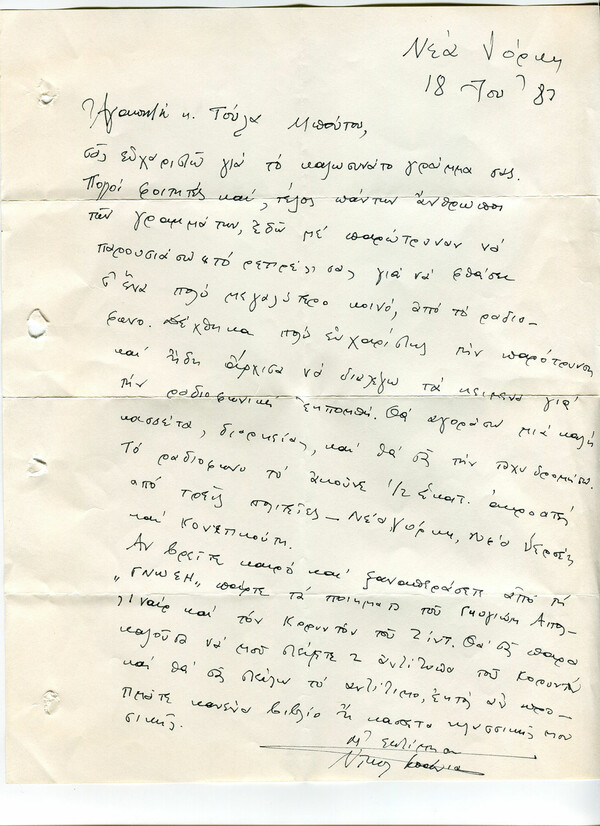 Νέα Υόρκη
18 Ιου '87
Ἀγαπητή κ. Τούλα Μπούτου,
σᾶς εὐχαριστῶ γιά τό καλωσυνάτο γράμμα σας.
Πολοί φοιτητές καί, τέλος πάντων ἄνθρωποι
τῶν γραμμάτων, ἐδῶ μέ παρώτρυναν νά
παρουσιάσω τό ρεπρέζι σας γιά νά φθάσει
σ' ἕνα πολύ μεγαλύτερο κοινό, ἀπό τό ραδιο-
φωνο. Δέχθηκα πολύ εὐχαρίστως τήν παρότρυνση
καί ἤδη ἄρχισα νά διαλέγω τά κείμενα γιά
τήν ραδιοφωνική ἐκπομπή. Θά ἀγοράσω μιά καλή
κασσέτα, διαρκείας, καί θά σᾶς τήν ταχυδρομήσω.
Τό ραδιοφωνο τό ἀκοῦνε 1/2 ἑκατ. ἀκροατές
ἀπό τρεῖς πολιτεῖες – Νέα Υόρκη, Νέα Υερσέη
καί Κονέτικοτ.
Αν βρεῖτε καιρό καί ξαναπεράσετε ἀπό τή
„ΓΝΩΣΗ„ πάρτε τά ποιήματα τοῦ Γκυγιώμ Απολ-
λιναίρ καί τόν Κορυντόν τοῦ Ζίντ. Θά σᾶς παρα
καλοῦσα νά μοῦ στείλτε 2 ἀντίτυπα τοῦ Κορυντόν
καί θά σᾶς στείλω τό ἀντίτιμο, ἐκτός ἄν προ-
τιμᾶτε κανένα βιβλίο ἤ κασέτα κλασσικής μου
σικῆς.
Μ' ἐκτίμηση
Νίκος